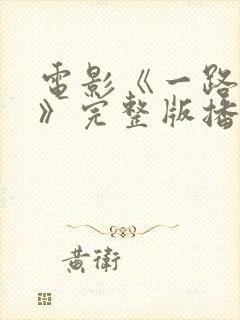 電影《一路
》完整版播
黄衛